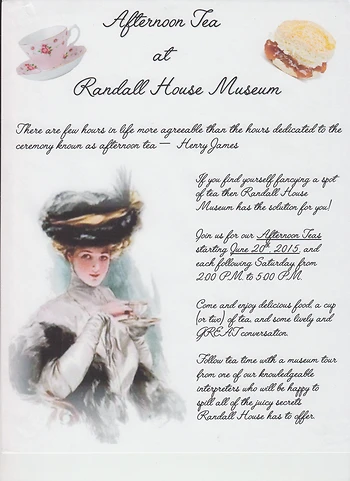 Afternoon Tea
at
Randall House Museum
There are few hours in life more agreeable than the hours dedicated to the
ceremony known as afternoon tea — Henry James
If you find yourself fancying a spot
of tea then Randall House
Museum has the solution for you!
Join us for our Afternoon Teas
starting June 20th, 2015, and
each following Saturday from
2:00 P.M. to 5:00 P.M.
Come and enjoy delicious food, a cup
(or two) of tea, and some lively and
GREAT conversation.
Follow tea time with a museum tour
from one of our knowledgeable
interpreters who will be happy to
spill all of the juicy secrets
Randall House has to offer.